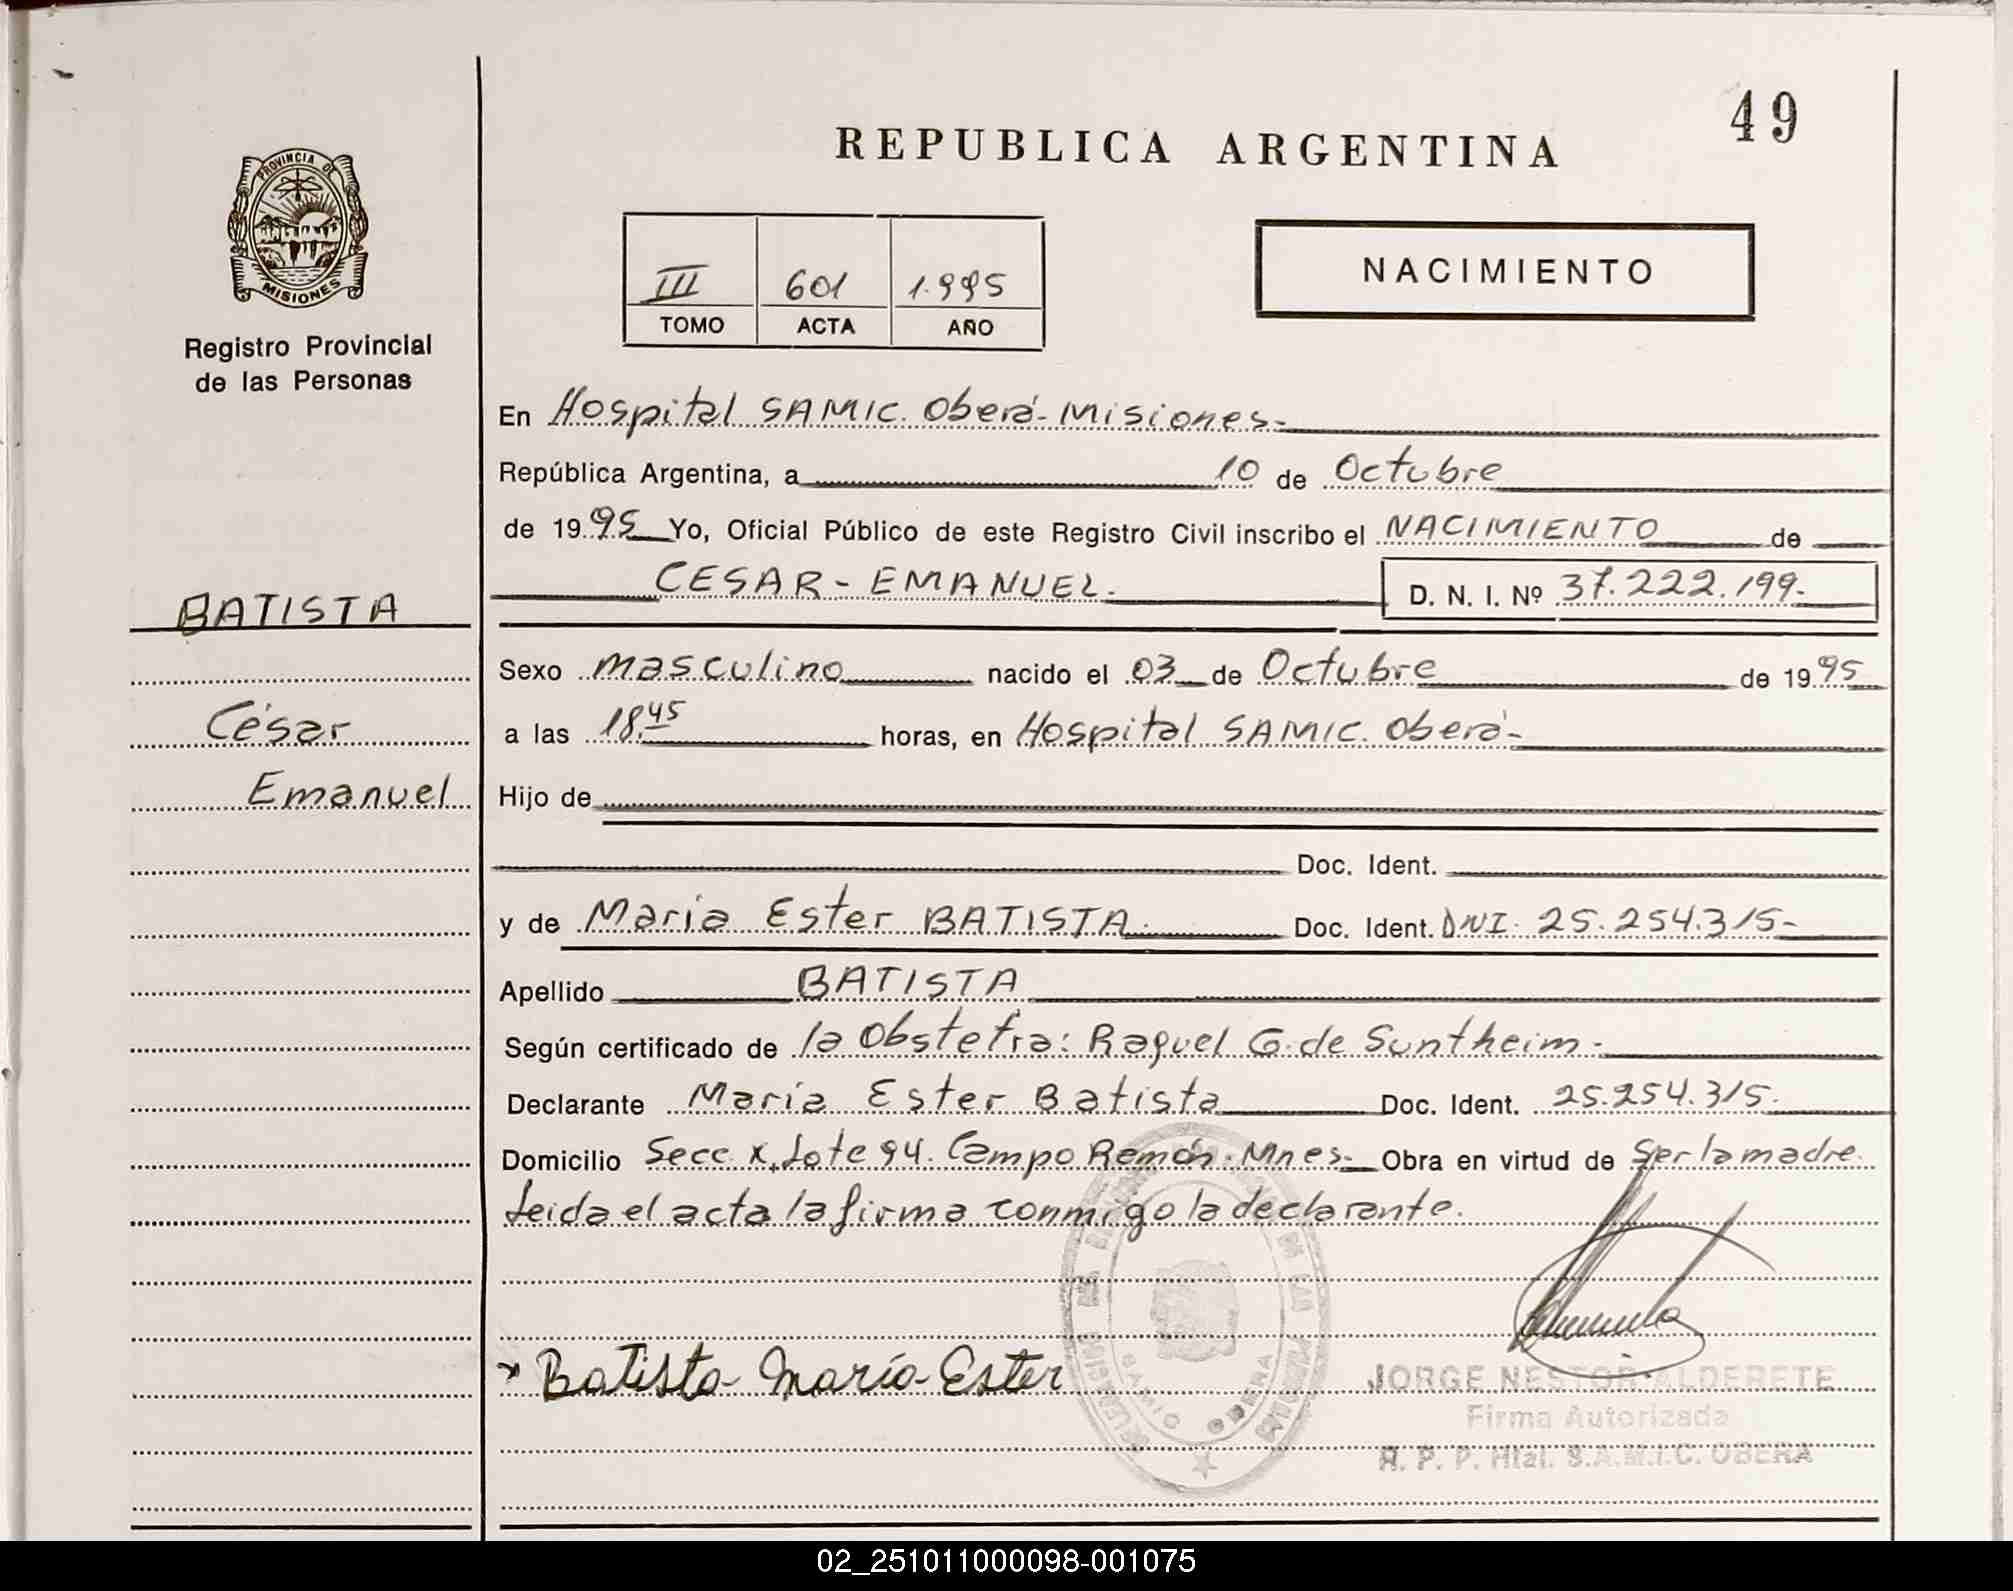 49
REPUBLICA ARGENTINA
PROVINCIA DE
MISIONES
Registro Provincial
de las Personas
III 601 1.995
TOMO ACTA AÑO
NACIMIENTO
En Hospital SAMIC. Oberá- Misiones-
República Argentina, a 10 de Octubre
de 19 95 Yo, Oficial Público de este Registro Civil inscribo el NACIMIENTO de
CESAR - EMANUEL. D. N. I. Nº 37.222.199-
BATISTA
César
Emanuel
Sexo masculino nacido el 03 de Octubre de 19 95
a las 18,45 horas, en Hospital SAMIC. Oberá-
Hijo de
Doc. Ident.
y de María Ester BATISTA. Doc. Ident. DNI. 25.254.315-
Apellido BATISTA
Según certificado de la Obstetra: Raquel G. de Suntheim-
Declarante María Ester Batista Doc. Ident. 25.254.315.
Domicilio Secc. X, Lote 94. Campo Ramón. Mnes- Obra en virtud de ser la madre.
Leida el acta la firma conmigo la declarante.
Batista María Ester
OBERA
JORGE NESTOR ALDERETE
Firma Autorizada
R. P. P. Htal. S.A.M.I.C. OBERA
02_251011000098-001075